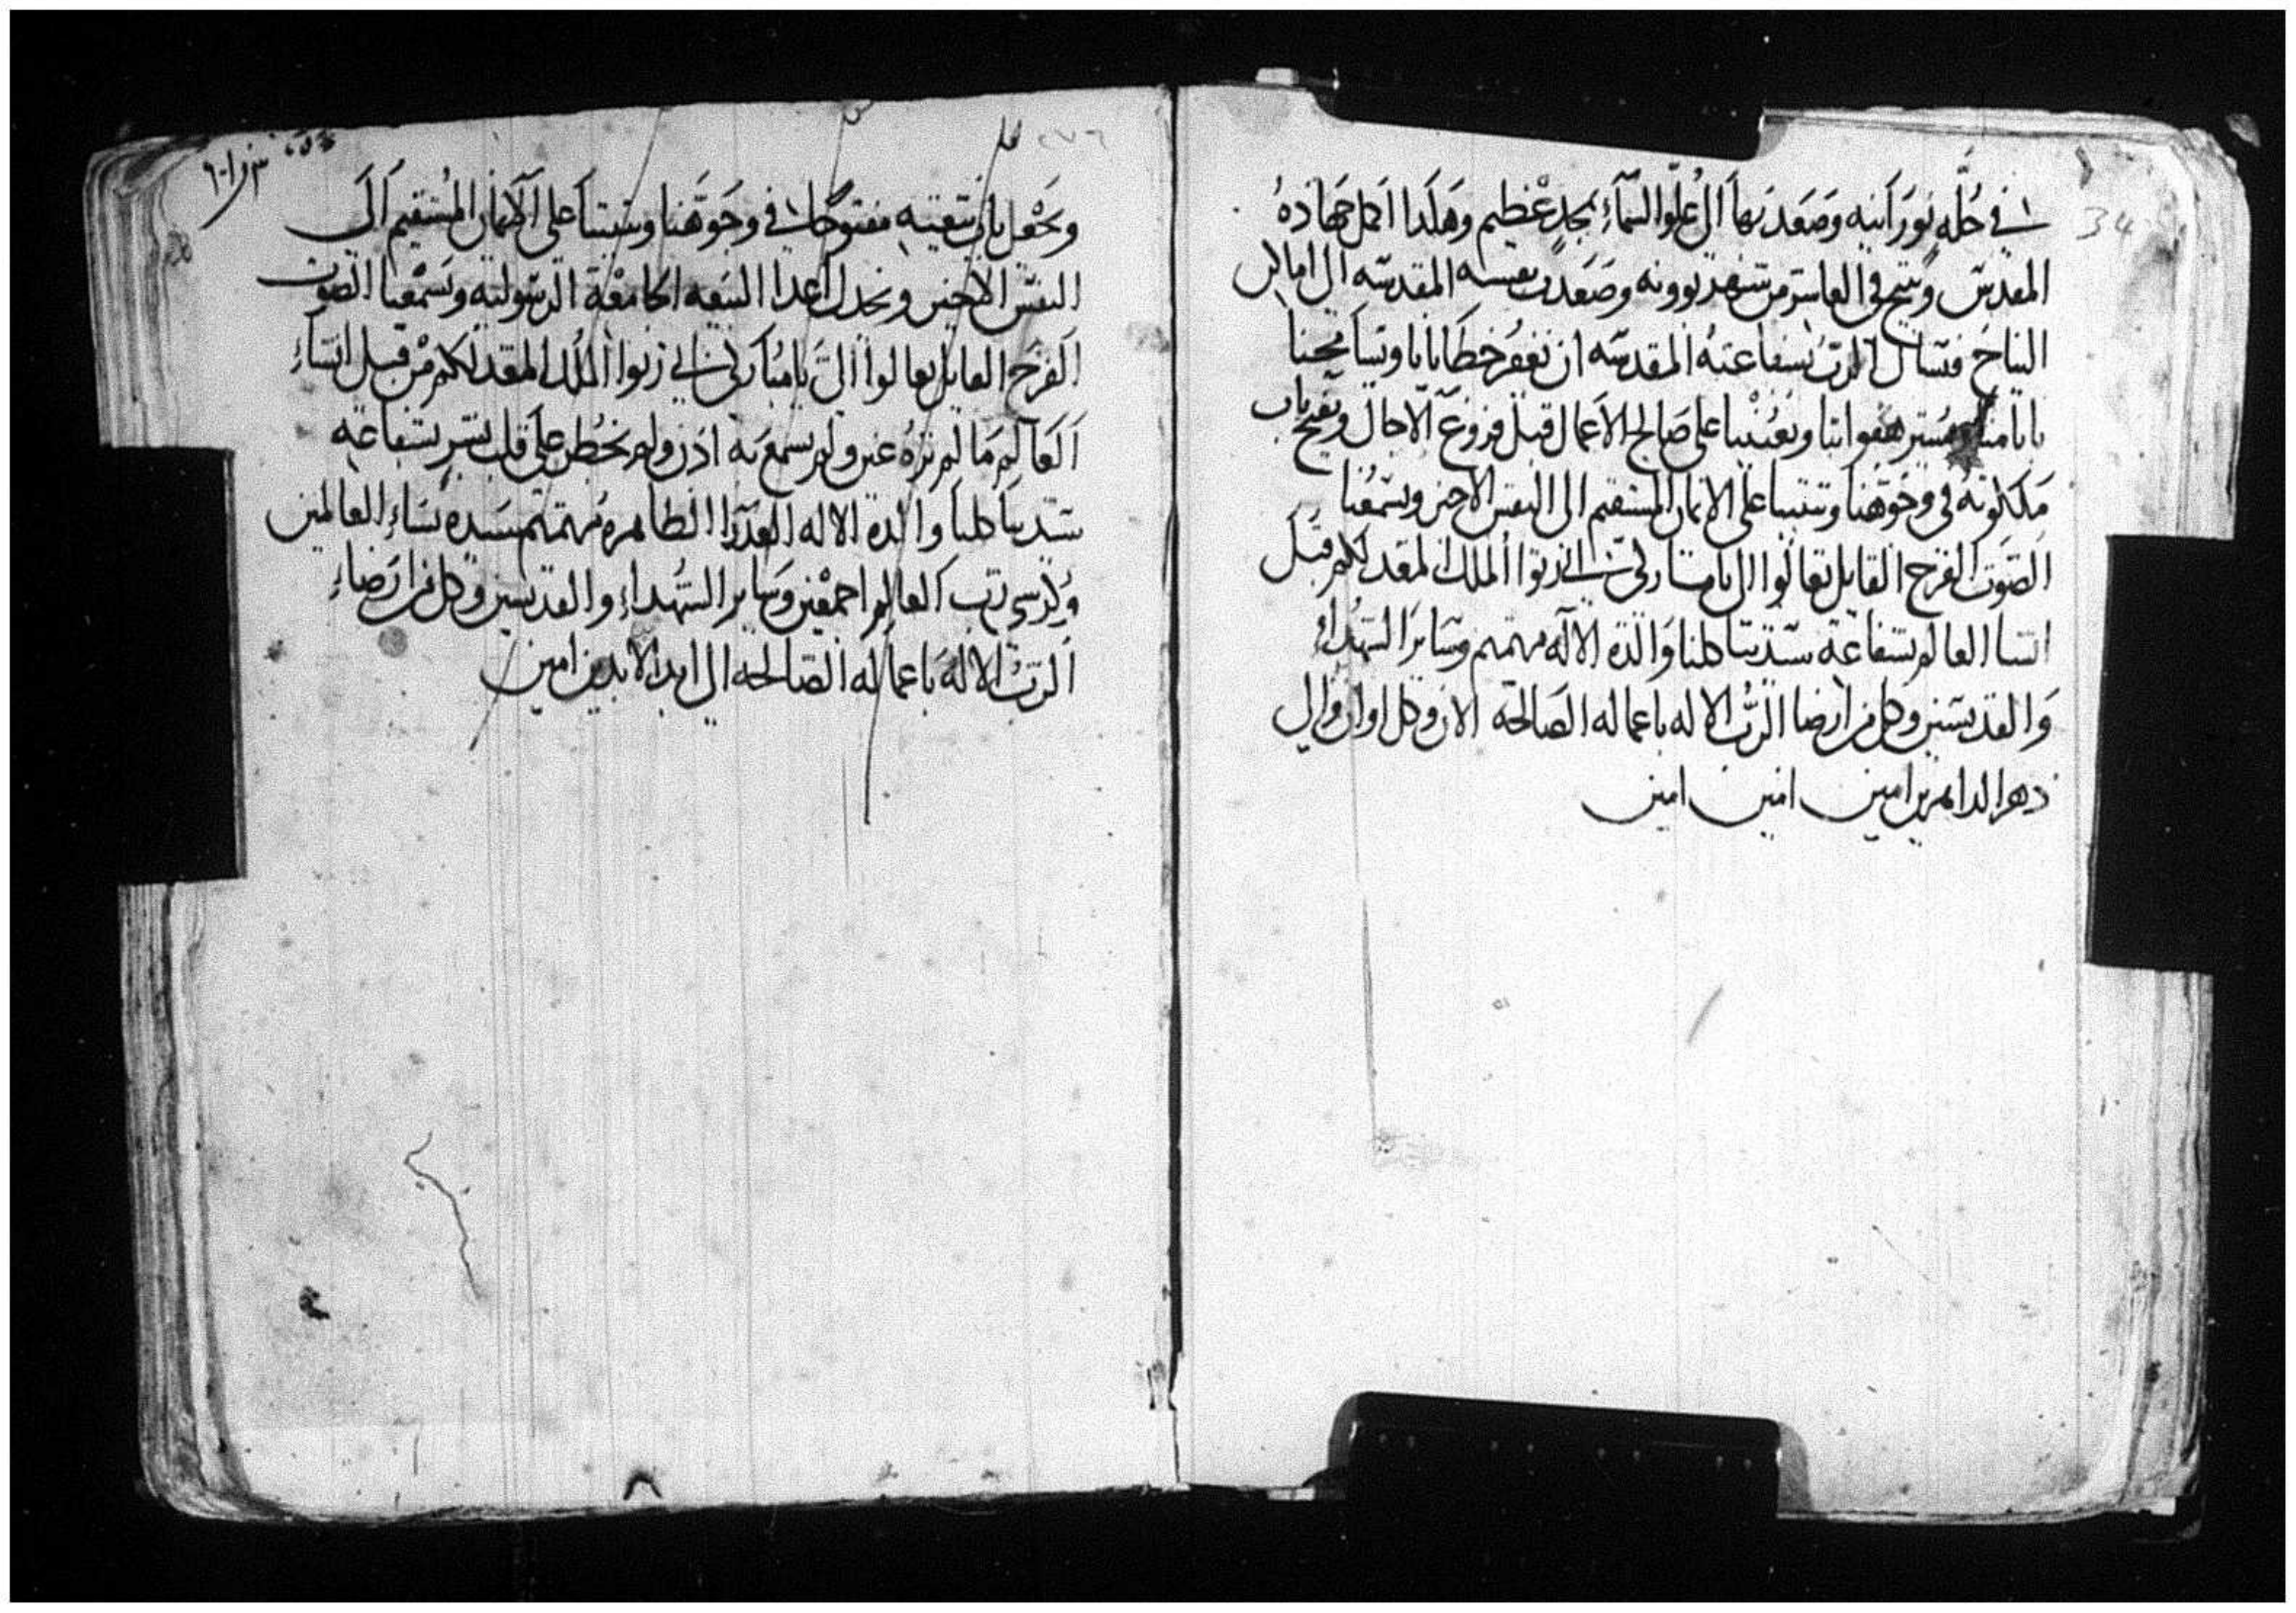 في حُلَّه نورَانيه وصَعَد بهَا الى عُلوّ السَّمَآءِ بمجدٍ عَظيم وهَكَدا اكمل جهَادهُ
المقدسّ وتنيح في العاشر من شهر بوونه وصَعَدت نفسه المقدسّه الى اماكن
النياحَ فنسال الربّ بشفاعَتهُ المقدسّه ان يَغفرُ خطَايانا ويسَامحِنا
ويَعُيننا على صَالح الاعَمال قبل فروغ الاجال ويفتح باب
مَلكوُتهُ في وجَوُهَنا ويثبتنا على الايمان المستقيم الى النفس الاخير ويسَمعُنا
الصَوت الفرح القايل تعَالوُا الىّ يا مباركي ابي ارثوا الملك المعَد لكم قبل
انشا العالم بشفاعَة سّيدتنا كلنا وَالدة الالَه مرتمريم وسَاير الشهُداءُ
وَالقديسَين وكل من ارضا الربُّ الاله باعماله الصَالحَة الان وكل اوان والى
دهر الداهرين امين امين امين
٢٧٦
ويجعَل باب بيعَته مفتوحًا في وجَوهَنا ويثبتنا على الايمان المُستقيم الَى
النفسّ الاخير ويخدل اعدا البيعَه الجامعَة الرسّوليه ويسَمعنا الصوت
الفرَح القايل تعَالوا الىَّ يا مبُاركي ابي ارثوا المُلك المعَد لكم منْ قبل انشاءِ
العَالم مَا لم ترَهُ عَين ولم تسمعَ به اذن ولم يخطُر علىَ قلب بشر بشفاعَة
سَيدتنا كلنا والدة الاله العَدرَا الطاهرهَ مرتمريم سَيدة نسَاءِ العَالمين
العالم اجمعَين وسَاير الشهُداءِ والقديسين وكل من ارضَاءِ
الربُّ الالهَ باعمَاله الصَالحه الى ابد الابدين امين